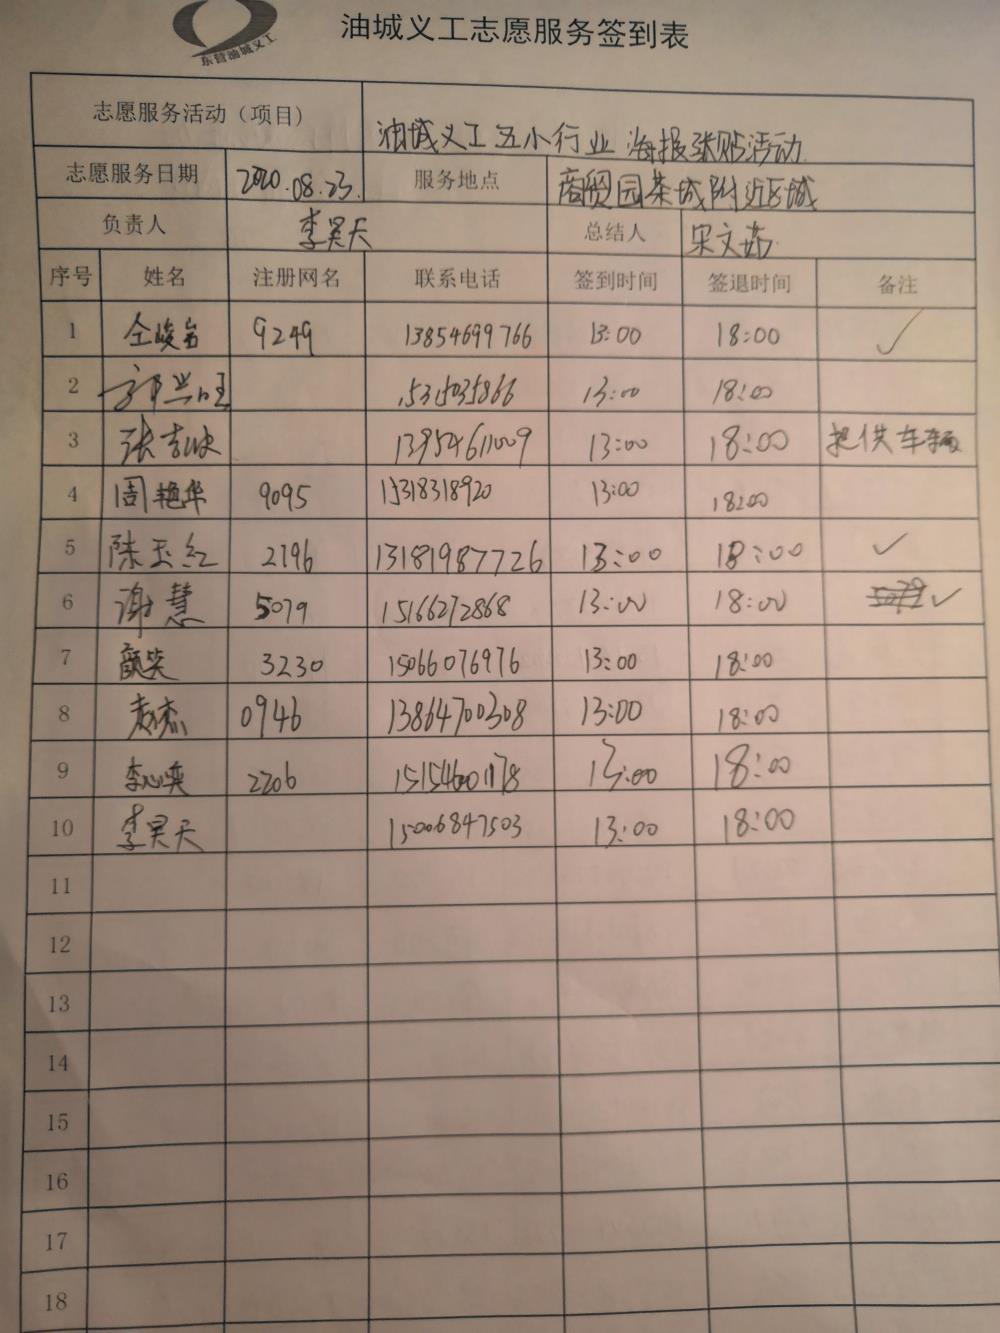 东营油城义工
油城义工志愿服务签到表
志愿服务活动（项目） 油城义工五小行业 海报张贴活动
志愿服务日期 2020.08.23. 服务地点 商贸园茶城附近区域
负责人 李昊天 总结人 宋文茹
序号 姓名 注册网名 联系电话 签到时间 签退时间 备注
1 仝峻岩 9249 13854699766 13:00 18:00 ✓
2 兴旺 15315035866 13:00 18:00
3 张志波 13954611009 13:00 18:00 提供车辆
4 周艳华 9095 15318318920 13:00 18:00
5 陈玉红 2196 13181987726 13:00 18:00 ✓
6 谢慧 5079 15166272868 13:00 18:00 ✓
7 颜笑 3230 15066076976 13:00 18:00
8 0946 13864700308 13:00 18:00
9 李心奕 2206 15154600178 13:00 18:00
10 李昊天 15006847503 13:00 18:00
11
12
13
14
15
16
17
18